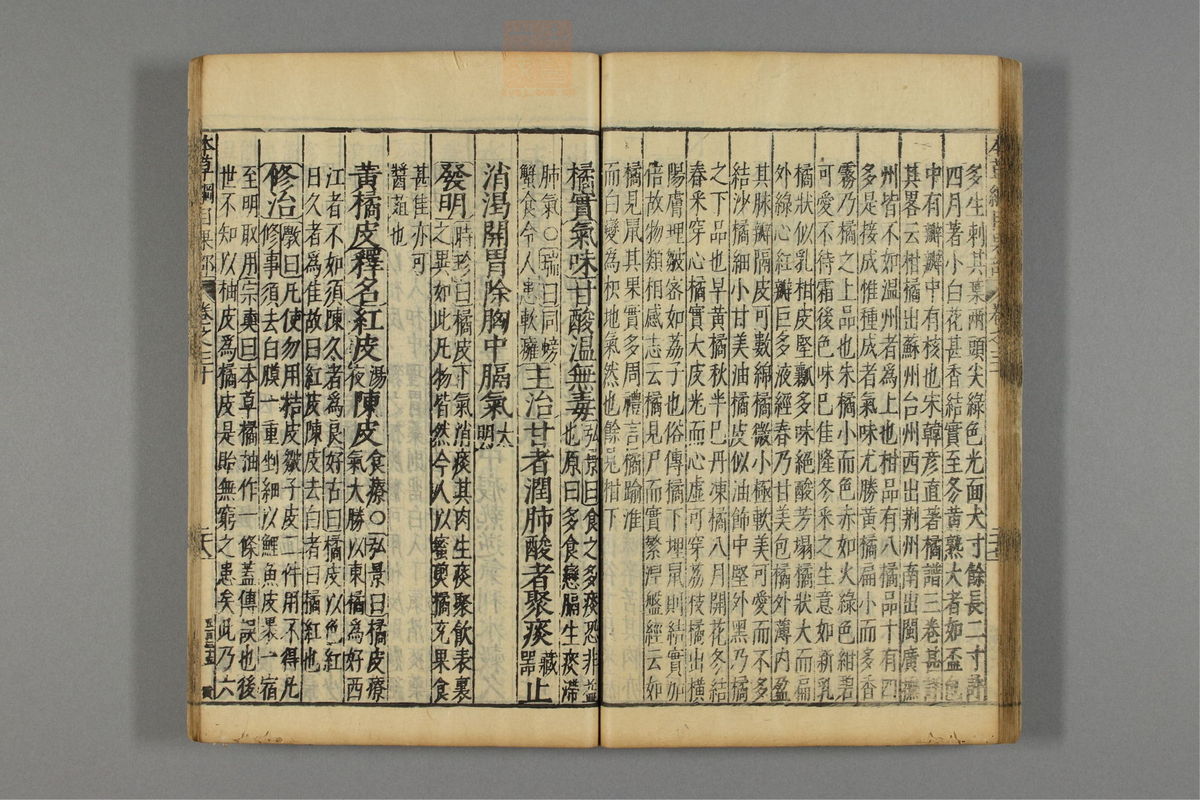 多生刺其葉兩頭尖綠色光面大寸餘長二寸許
四月著小白花甚香結實至冬黃熟大者如盃包
中有瓣瓣中有核也宋韓彥直著橘譜三卷甚詳
其畧云柑橘出蘇州台州西出荆州南出閩廣撫
州皆不如温州者為上也柑品有八橘品十有四
多是接成惟種成者氣味尤勝黃橘扁小而多香
霧乃橘之上品也朱橘小而色赤如火綠色紺碧
可愛不待霜後色味巳佳隆冬采之生意如新乳
橘狀似乳柑皮堅瓤多味絶酸芳塌橘狀大而扁
外綠心紅瓣巨多液經春乃甘美包橘外薄内盈
其脉瓣隔皮可數綿橘微小極軟美可愛而不多
結沙橘細小甘美油橘皮似油飾中堅外黑乃橘
之下品也早黃橘秋半巳丹凍橘八月開花冬結
春采穿心橘實大皮光而心虛可穿荔枝橘出橫
陽膚理皺宻如荔子也俗傳橘下埋鼠則結實加
倍故物類相感志云橘見尸而實繁涅槃經云如
橘見鼠其果實多周禮言橘踰淮
而北變為枳地氣然也餘見柑下
橘實氣味甘酸温無毒弘景曰食之多痰恐非益
也原曰多食戀膈生痰滯
肺氣○瑞曰同螃
蟹食令人患軟癰主治甘者潤肺酸者聚痰藏
器止
消渴開胃除胸中膈氣大
明
發明時珍曰橘皮下氣消痰其肉生痰聚飲表裏
之異如此凡物皆然今人以蜜煎橘充果食
甚佳亦可
醬菹也
黃橘皮釋名紅皮湯
液陳皮食療○弘景曰橘皮療
氣大勝以東橘為好西
江者不如須陳久者為良好古曰橘皮以色紅
日久者為佳故曰紅皮陳皮去白者曰橘紅也
修治斆曰凡使勿用柚皮皺子皮二件用不得凡
修事須去白膜一重剉細以鯉魚皮裹一宿
至明取用宗奭曰本草橘柚作一條蓋傳誤也後
世不知以柚皮為橘皮是貽無窮之患矣此乃六
本草綱目果部
卷之三十